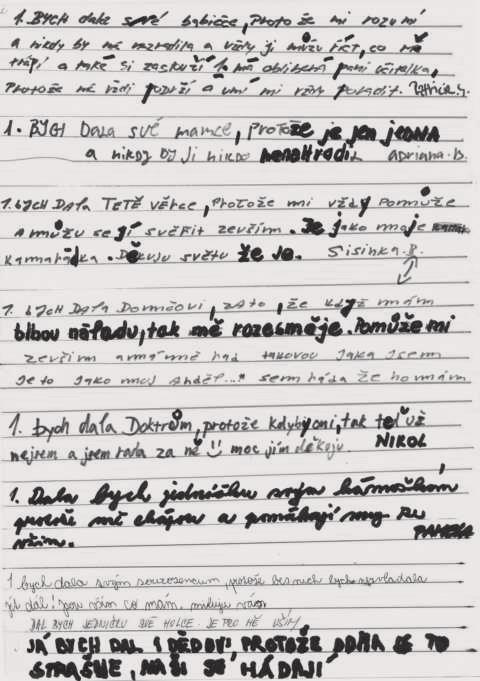 1. BYCH dala své babičce, Proto že mi rozumí
a nikdy by mě nezradila a vždy ji můžu říct, co mě
trápí a také si zaslouží 1 má oblíbená paní učitelka,
Protože mě vždi podrží a umí mi vždy poradit.
1. BYCH Dala své mamce, Protože je jen jedna
a nikdy by ji nikdo nenahradil adriana.B.
1. bych Dala TETĚ věrce, Protože mi vždy Pomůže
a můžu se jí svěřit zevším. Je jako moje
kamarádka. Děkuju světu že je. Sisinka.B.
1. bych Dala Dominčovi, zato, že když mám
blbou náladu, tak mě rozesměje. Pomůže mi
zevším a má mně rád takovou jaká jsem
Je to jako muj Anděl...* sem ráda že ho mám
1. bych dala Doktrům, protože kdyby oni, tak teď už
nejsem a jsem rada za ně moc jím děkuju NIKOL
1. Dala bych jedničku svým kámoškám
protože mě chápou a pomáhají my se
vším. PAMELA
1 bych dala svým sourozencum, protože bes nich bych nezvladala
jít dál! Jsou vším co mám. miluju vás
DAL BYCH JEDNIČKU SVÉ HOLCE. JE PRO MĚ VŠÍM,
JÁ BYCH DAL 1 DĚDOVI, PROTOŽE DOMA JE TO
STRAŠNÉ, NAŠI SE HÁDAJÍ